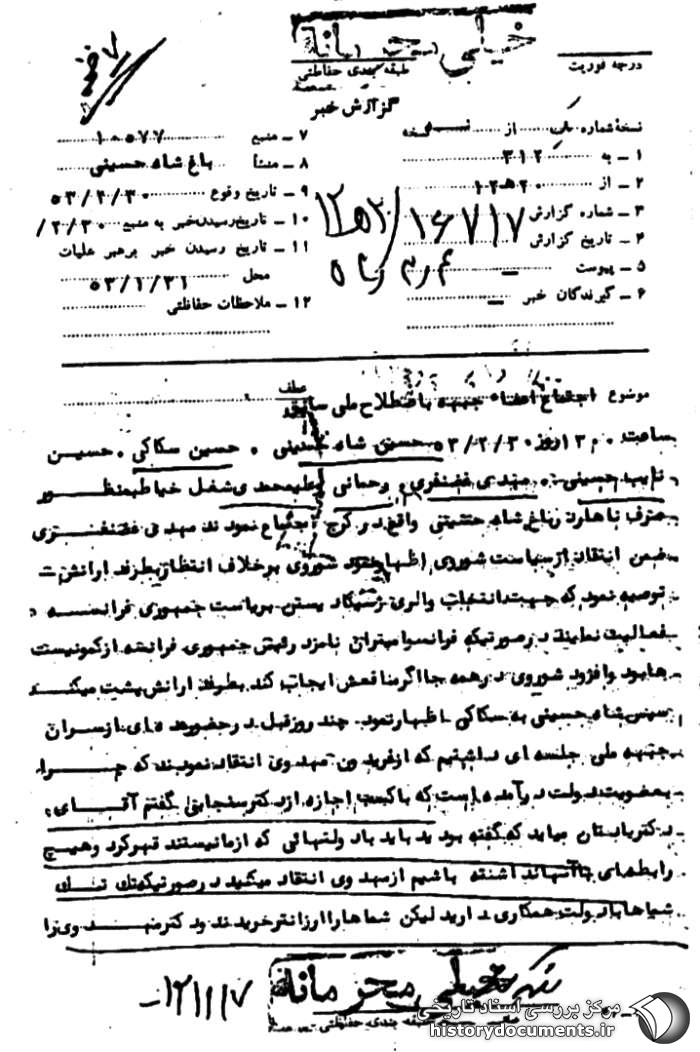 خیلی محرمانه
طبقه بندی حفاظتی
درجه فوریت
گزارش خبر
نسخه شماره یک از نسخه
۱ ـ به ۳۱۲
۲ ـ از ۲۰ ه‍ ۱۲
۳ ـ شماره گزارش ۱۶۷۱۷
۴ ـ تاریخ گزارش
۵ ـ پیوست ـ
۶ ـ گیرندگان خبر ـ
۷ ـ منبع ۱۰۵۷۷
۸ ـ منشأ باغ شاه حسینی
۹ ـ تاریخ وقوع ۵۳/۲/۲۰
۱۰ ـ تاریخ رسیدن خبر به منبع
۱۱ ـ تاریخ رسیدن خبر برهبر عملیات
محل
۱۲ ـ ملاحظات حفاظتی
عطف
موضوع اجتماع اعضاء جبهه باصطلاح ملی سابق
ساعت ۱۳۰۰ روز حسین شاه حسینی ، حسین سکاکی ، حسین
نایب حسینی ، مهدی غضنفری ، رحمانی شغل خیاط بمنظور
صرف ناهار در باغ شاه حسینی واقع در کرج اجتماع نمودند مهدی غضنفری
ضمن انتقاد از سیاست شوروی اظهار نمود شوروی برخلاف انتظار بطرفدارانش
توصیه نمود که جهت انتخاب والری ژیسکار دستن بریاست جمهوری فرانسه
فعالیت نمایند در صورتیکه فرانسوا میتران نامزد رئیس جمهوری فرانسه از کمونیست
ها بود وافزود شوروی در همه جا اگر منافعش ایجاب کند بطرفدارانش پشت میکند
سپس شاه حسینی به سکاکی اظهار نمود. چند روز قبل در حضور عده ای از سران
جبهه ملی جلسه ای داشتیم که از فریدون مهدوی انتقاد نمودند که چرا
بعضویت دولت درآمده است که با کسب اجازه از دکتر سنجابی گفتم آقای
دکتر یادتان میاید که گفته بودید باید با دولتهائی که از ما نیستند قهر کرد و هیچ
رابطه‌ای با آنها نداشته باشیم از مهدوی انتقاد میکنید در صورتیکه تک تک
شماها با دولت همکاری دارید لیکن شماها را ارزانتر خریدند و دکتر مهدوی را
خیلی محرمانه
طبقه بندی حفاظتی
مرکز بررسی اسناد تاریخی
historydocuments.ir